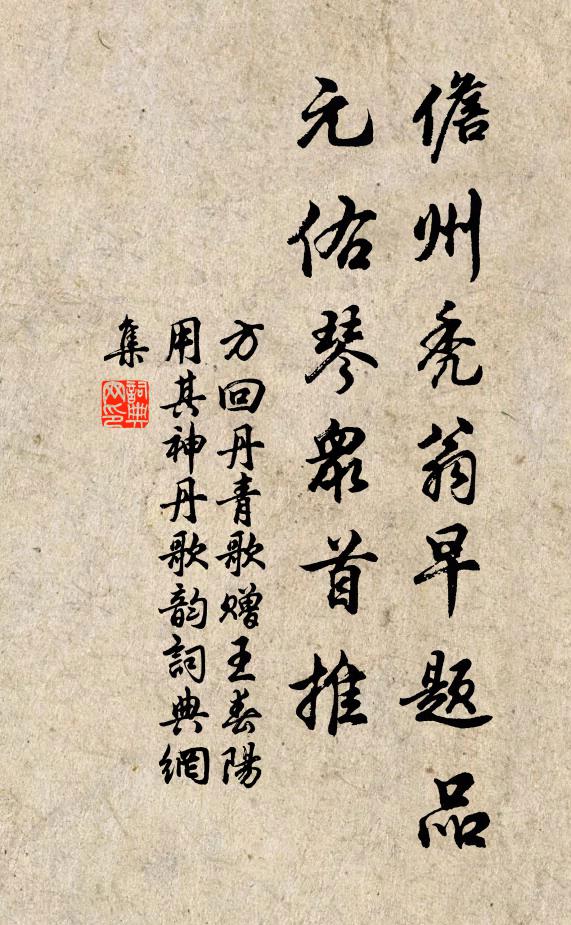 儋州秃翁早题品
元佑琴众首推
方回丹青歌赠王春陽
用其神丹歌韵詞典網
集
詞典网印